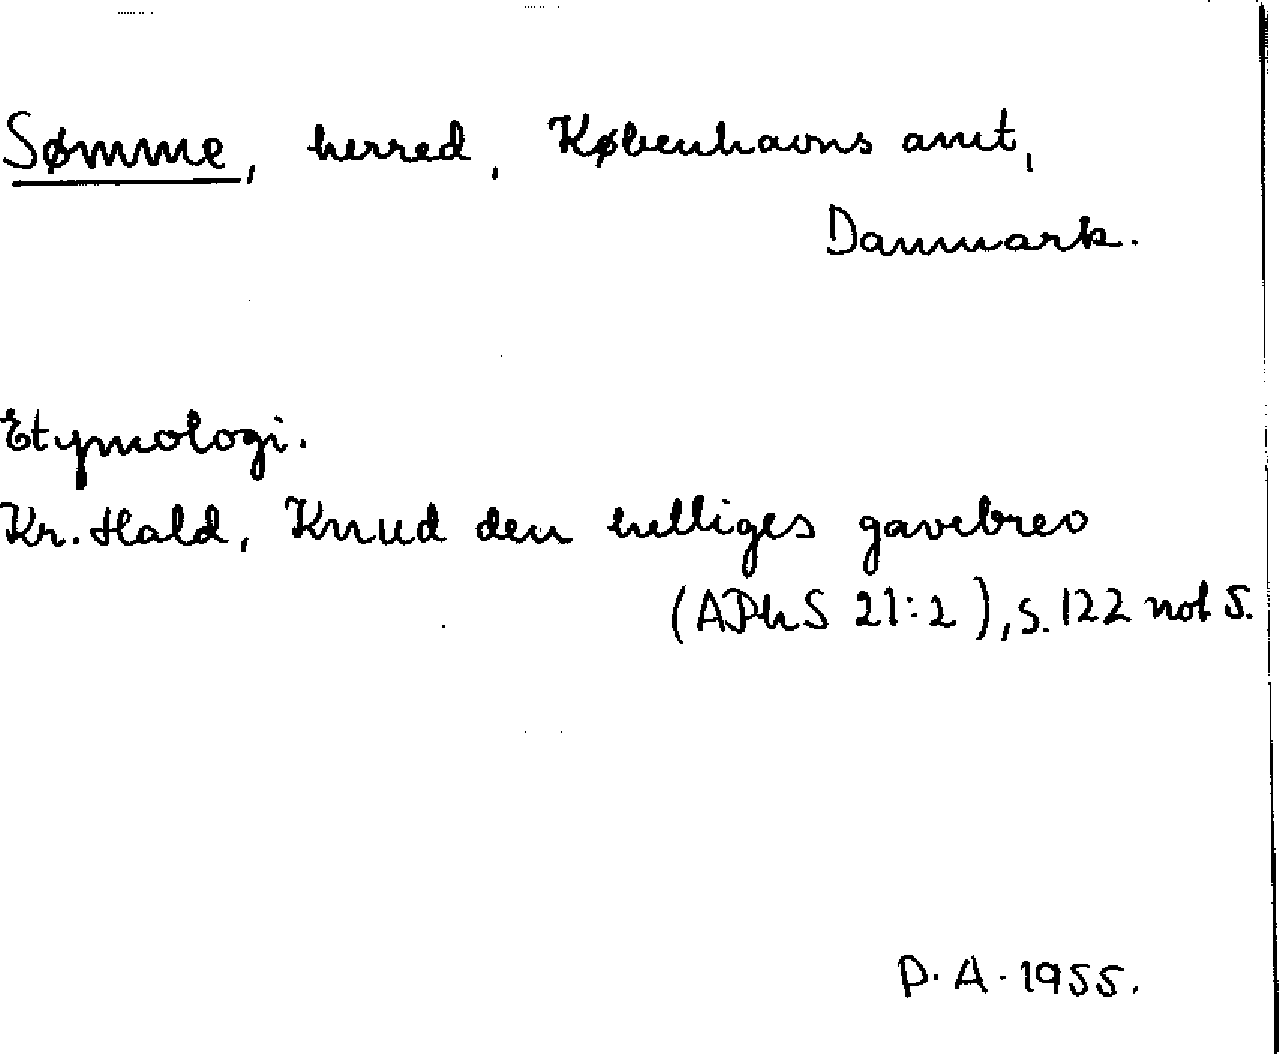 Sømme, herred, Københavns amt,
Danmark.
Etymologi.
Kr. Hald, Knud den helliges gavebrev
(APhS 21:2), s. 122 not 5.
P.A. 1955.